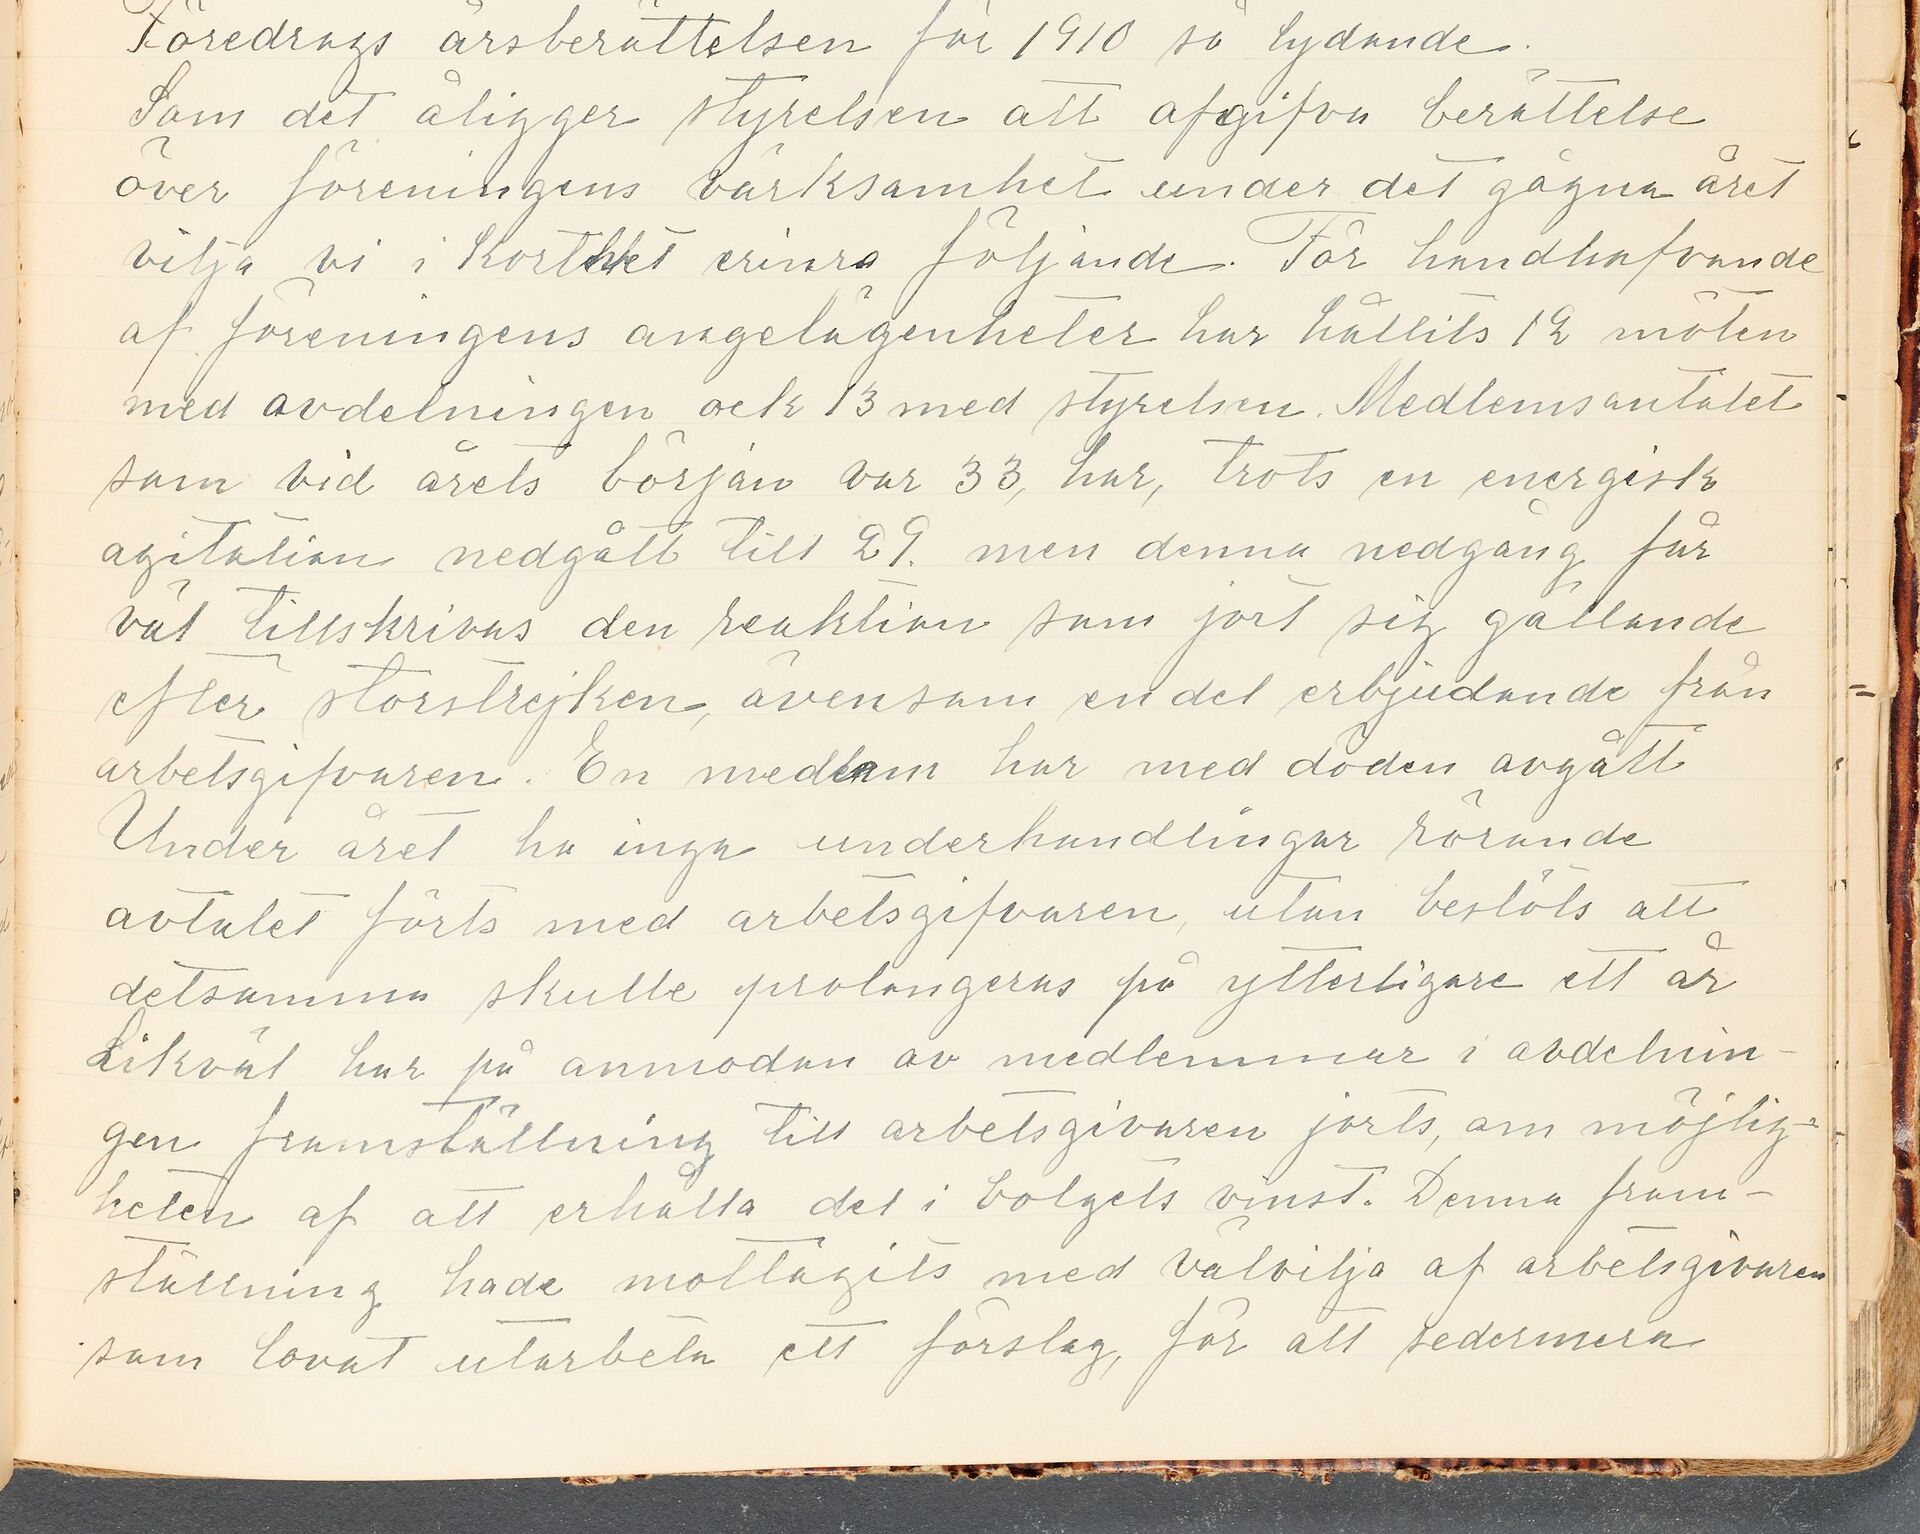 Föredrogs årsberättelsen för 1910 så lydande.
Som det åligger styrelsen att afgifva berättelse
över föreningens värksamhet under det gågna året
vilja vi i korthet erinra följande. För handhafvande
af föreningens angelägenheter har hållits 12 möten
med avdelningen ock 13 med styrelsen. Medlemsantalet
som vid årets början var 33, har, trots en energisk
agitation nedgått till 29. men denna nedgång får
väl tillskrivas den reaktion som jort sig gällande
efter storstrejken, ävensom en del erbjudande från
arbetsgifvaren. En medlem har med döden avgått
Under året ha inga underhandlingar rörande
avtalet förts med arbetsgifvaren, utan beslöts att
detsamma skulle prolongeras på ytterligare ett år
Likväl har på anmodan av medlemmar i avdelnin-
gen framställning till arbetsgivaren jorts, om möjlig-
heten af att erhålla del i bolgets vinst. Denna fram-
ställning hade mottagits med välvilja af arbetsgivaren
som lovat utarbeta ett förslag, för att sedermera